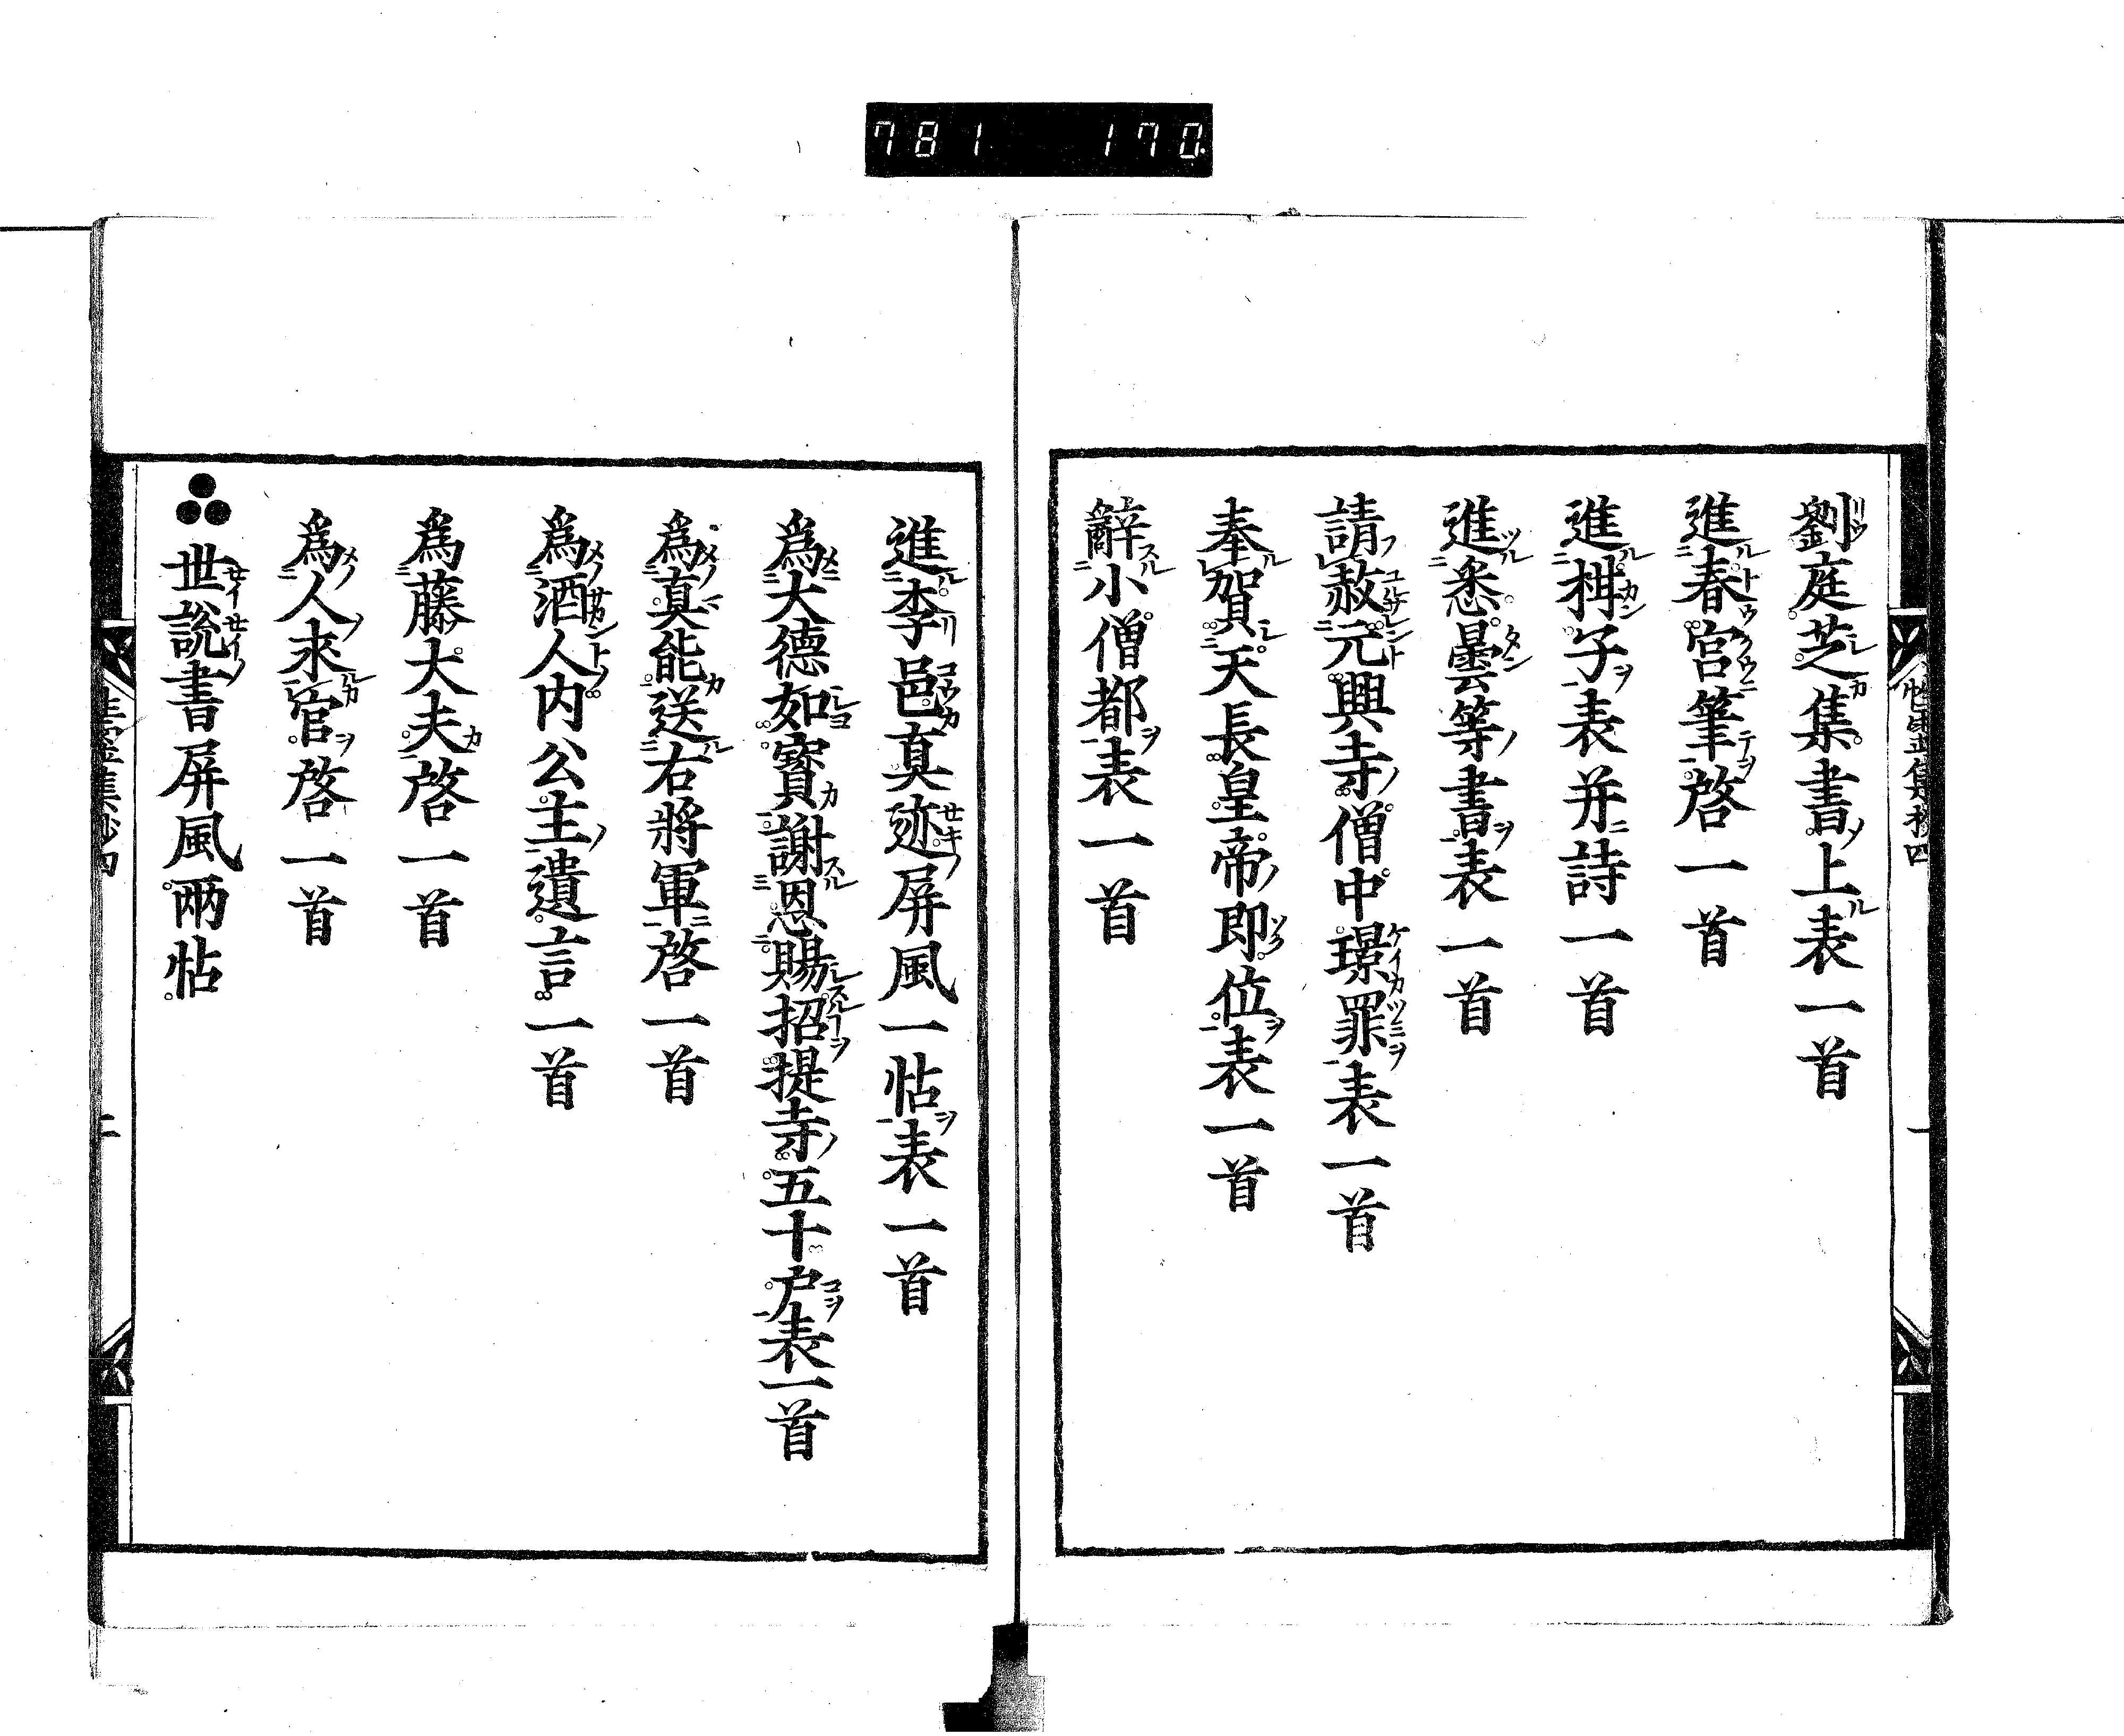 781 170
劉庭芝集書上表一首
進春宮筆啓一首
進柑子表并詩一首
進悉曇等書表一首
請赦元興寺僧中璟罪表一首
奉賀天長皇帝即位表一首
辭小僧都表一首
進李邕真跡屏風一帖表一首
為大德如寶謝恩賜招提寺五十戸表一首
為真能送右將軍啓一首
為酒人内公主遺言一首
為藤大夫啓一首
為人求官啓一首
世說書屏風兩帖